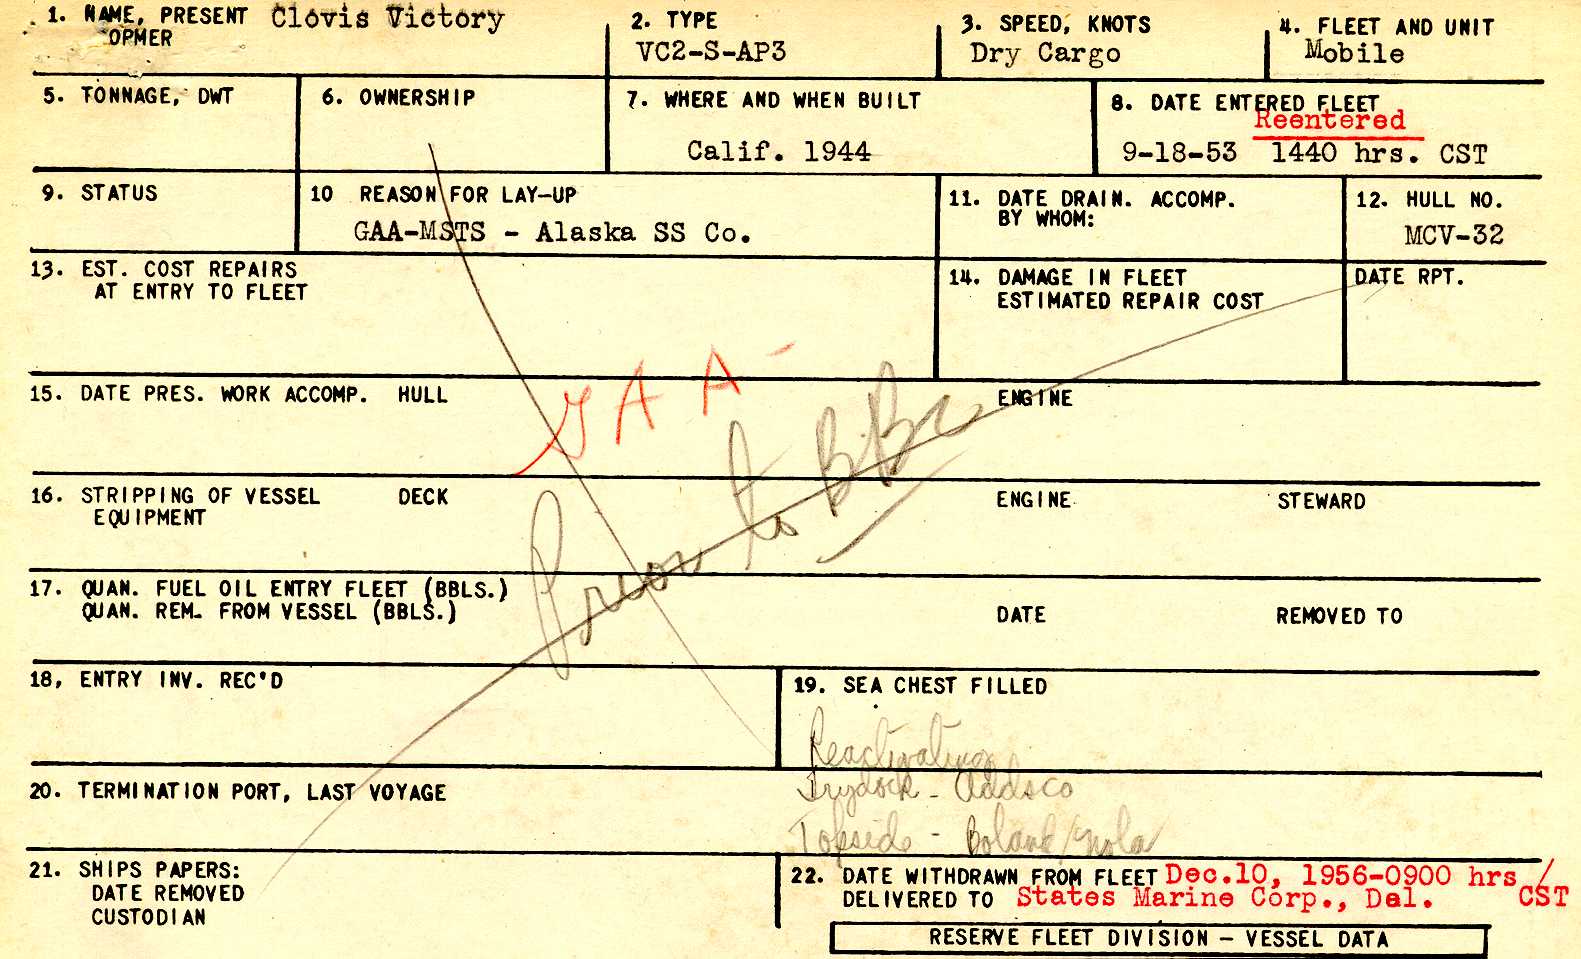 1. NAME, PRESENT Clovis Victory
OPMER
2. TYPE
VC2-S-AP3
3. SPEED, KNOTS
Dry Cargo
4. FLEET AND UNIT
Mobile
5. TONNAGE, DWT
6. OWNERSHIP
7. WHERE AND WHEN BUILT
Calif. 1944
8. DATE ENTERED FLEET
Reentered
9-18-53 1440 hrs. CST
9. STATUS
10 REASON FOR LAY-UP
GAA-MSTS - Alaska SS Co.
11. DATE DRAIN. ACCOMP.
BY WHOM:
12. HULL NO.
MCV-32
13. EST. COST REPAIRS
AT ENTRY TO FLEET
14. DAMAGE IN FLEET
ESTIMATED REPAIR COST
DATE RPT.
GAA
15. DATE PRES. WORK ACCOMP. HULL ENGINE
Prior to BBC
16. STRIPPING OF VESSEL DECK ENGINE STEWARD
EQUIPMENT
17. QUAN. FUEL OIL ENTRY FLEET (BBLS.)
QUAN. REM. FROM VESSEL (BBLS.) DATE REMOVED TO
18, ENTRY INV. REC'D
19. SEA CHEST FILLED
Reactivating
Drydock - Addsco
Topside - Boland/Nola
20. TERMINATION PORT, LAST VOYAGE
21. SHIPS PAPERS:
DATE REMOVED
CUSTODIAN
22. DATE WITHDRAWN FROM FLEET Dec.10, 1956-0900 hrs/
DELIVERED TO States Marine Corp., Del. CST
RESERVE FLEET DIVISION - VESSEL DATA